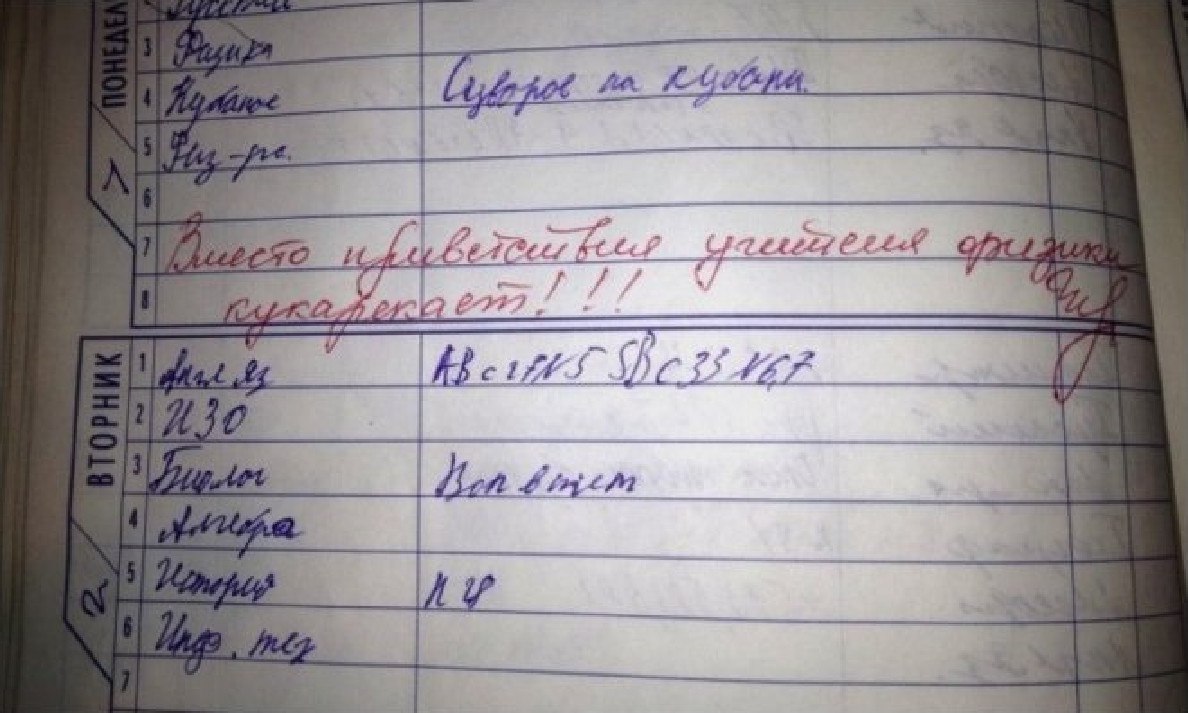 ПОНЕДЕЛ
3 Физика
4 Кубанов Суворов на Кубани.
5 Физ-ра.
6
7 Вместо приветствия учителя физики
8 кукарекает!!!
ВТОРНИК
1 Англ яз АВ с N5 SB с 33 N6,7
2 ИЗО
3 Биолог Воп в тет
4 Алгебра
5 История
2
6 Инф. тех
7